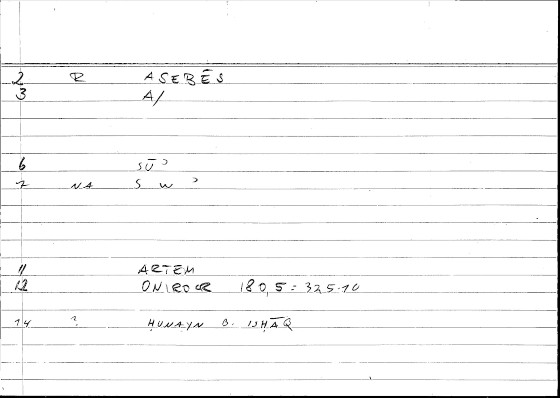 2 R ASEBĒS
3 A/
6 SŪʾ
7 NA S W ʾ
11 ARTEM
12 ONIROCR 180,5 = 325.10
14 ? ḤUNAYN B. ISḤĀQ